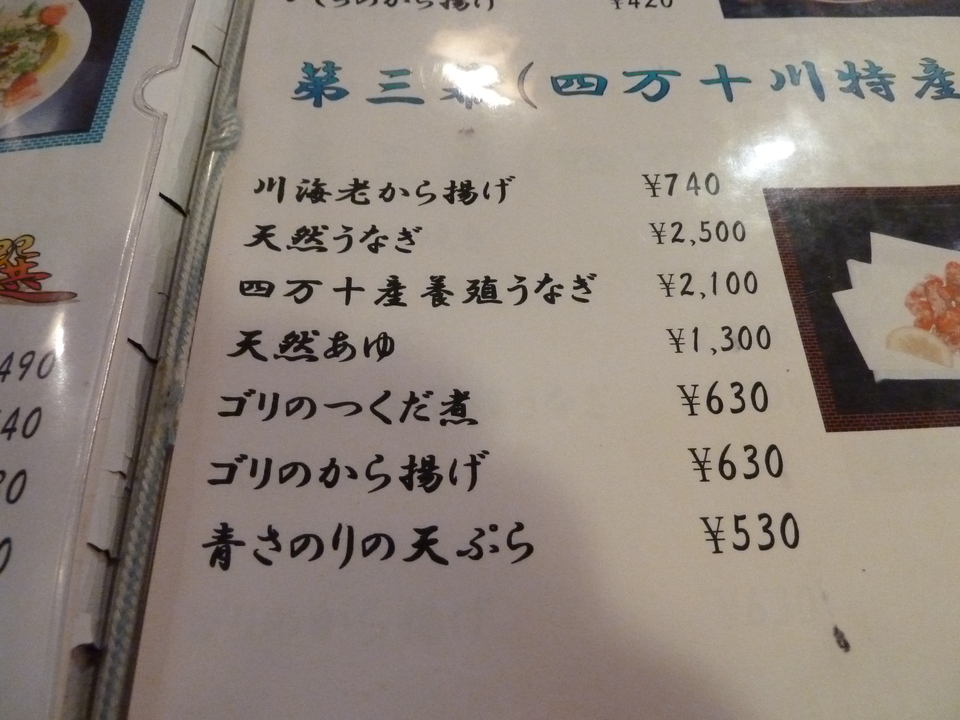 から揚げ ¥420
第三 (四万十川特産
川海老から揚げ ¥740
天然うなぎ ¥2,500
四万十産養殖うなぎ ¥2,100
天然あゆ ¥1,300
ゴリのつくだ煮 ¥630
ゴリのから揚げ ¥630
青さのりの天ぷら ¥530
選
490
40